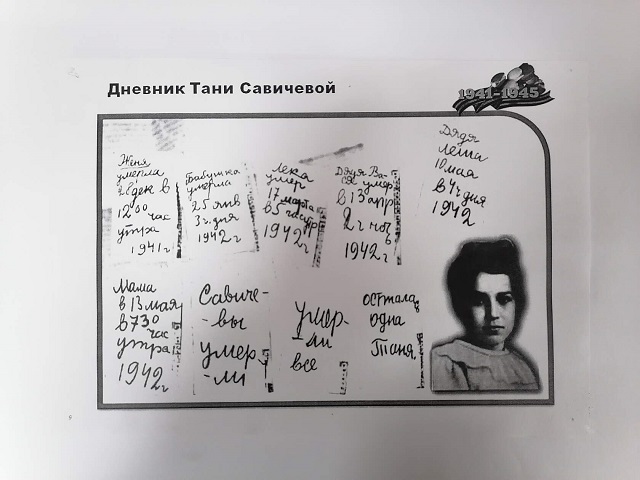 Дневник Тани Савичевой
1941-1945
Женя
умерла
28 дек в
12 00 час
утра
1941 г
Бабушка
умерла
25 янв
3 ч. дня
1942 г
Лека
умер
17 марта
в 5 час утр
1942 г
Дядя Ва-
ся умер
в 13 апр
2 ч ноч
1942 г
Дядя
Леша
10 мая
в 4 ч дня
1942
Мама
в 13 мая
в 7 30
час
утра
1942 г
Савиче-
-вы
умер-
-ли
умер-
-ли
все
осталась
одна
Таня.